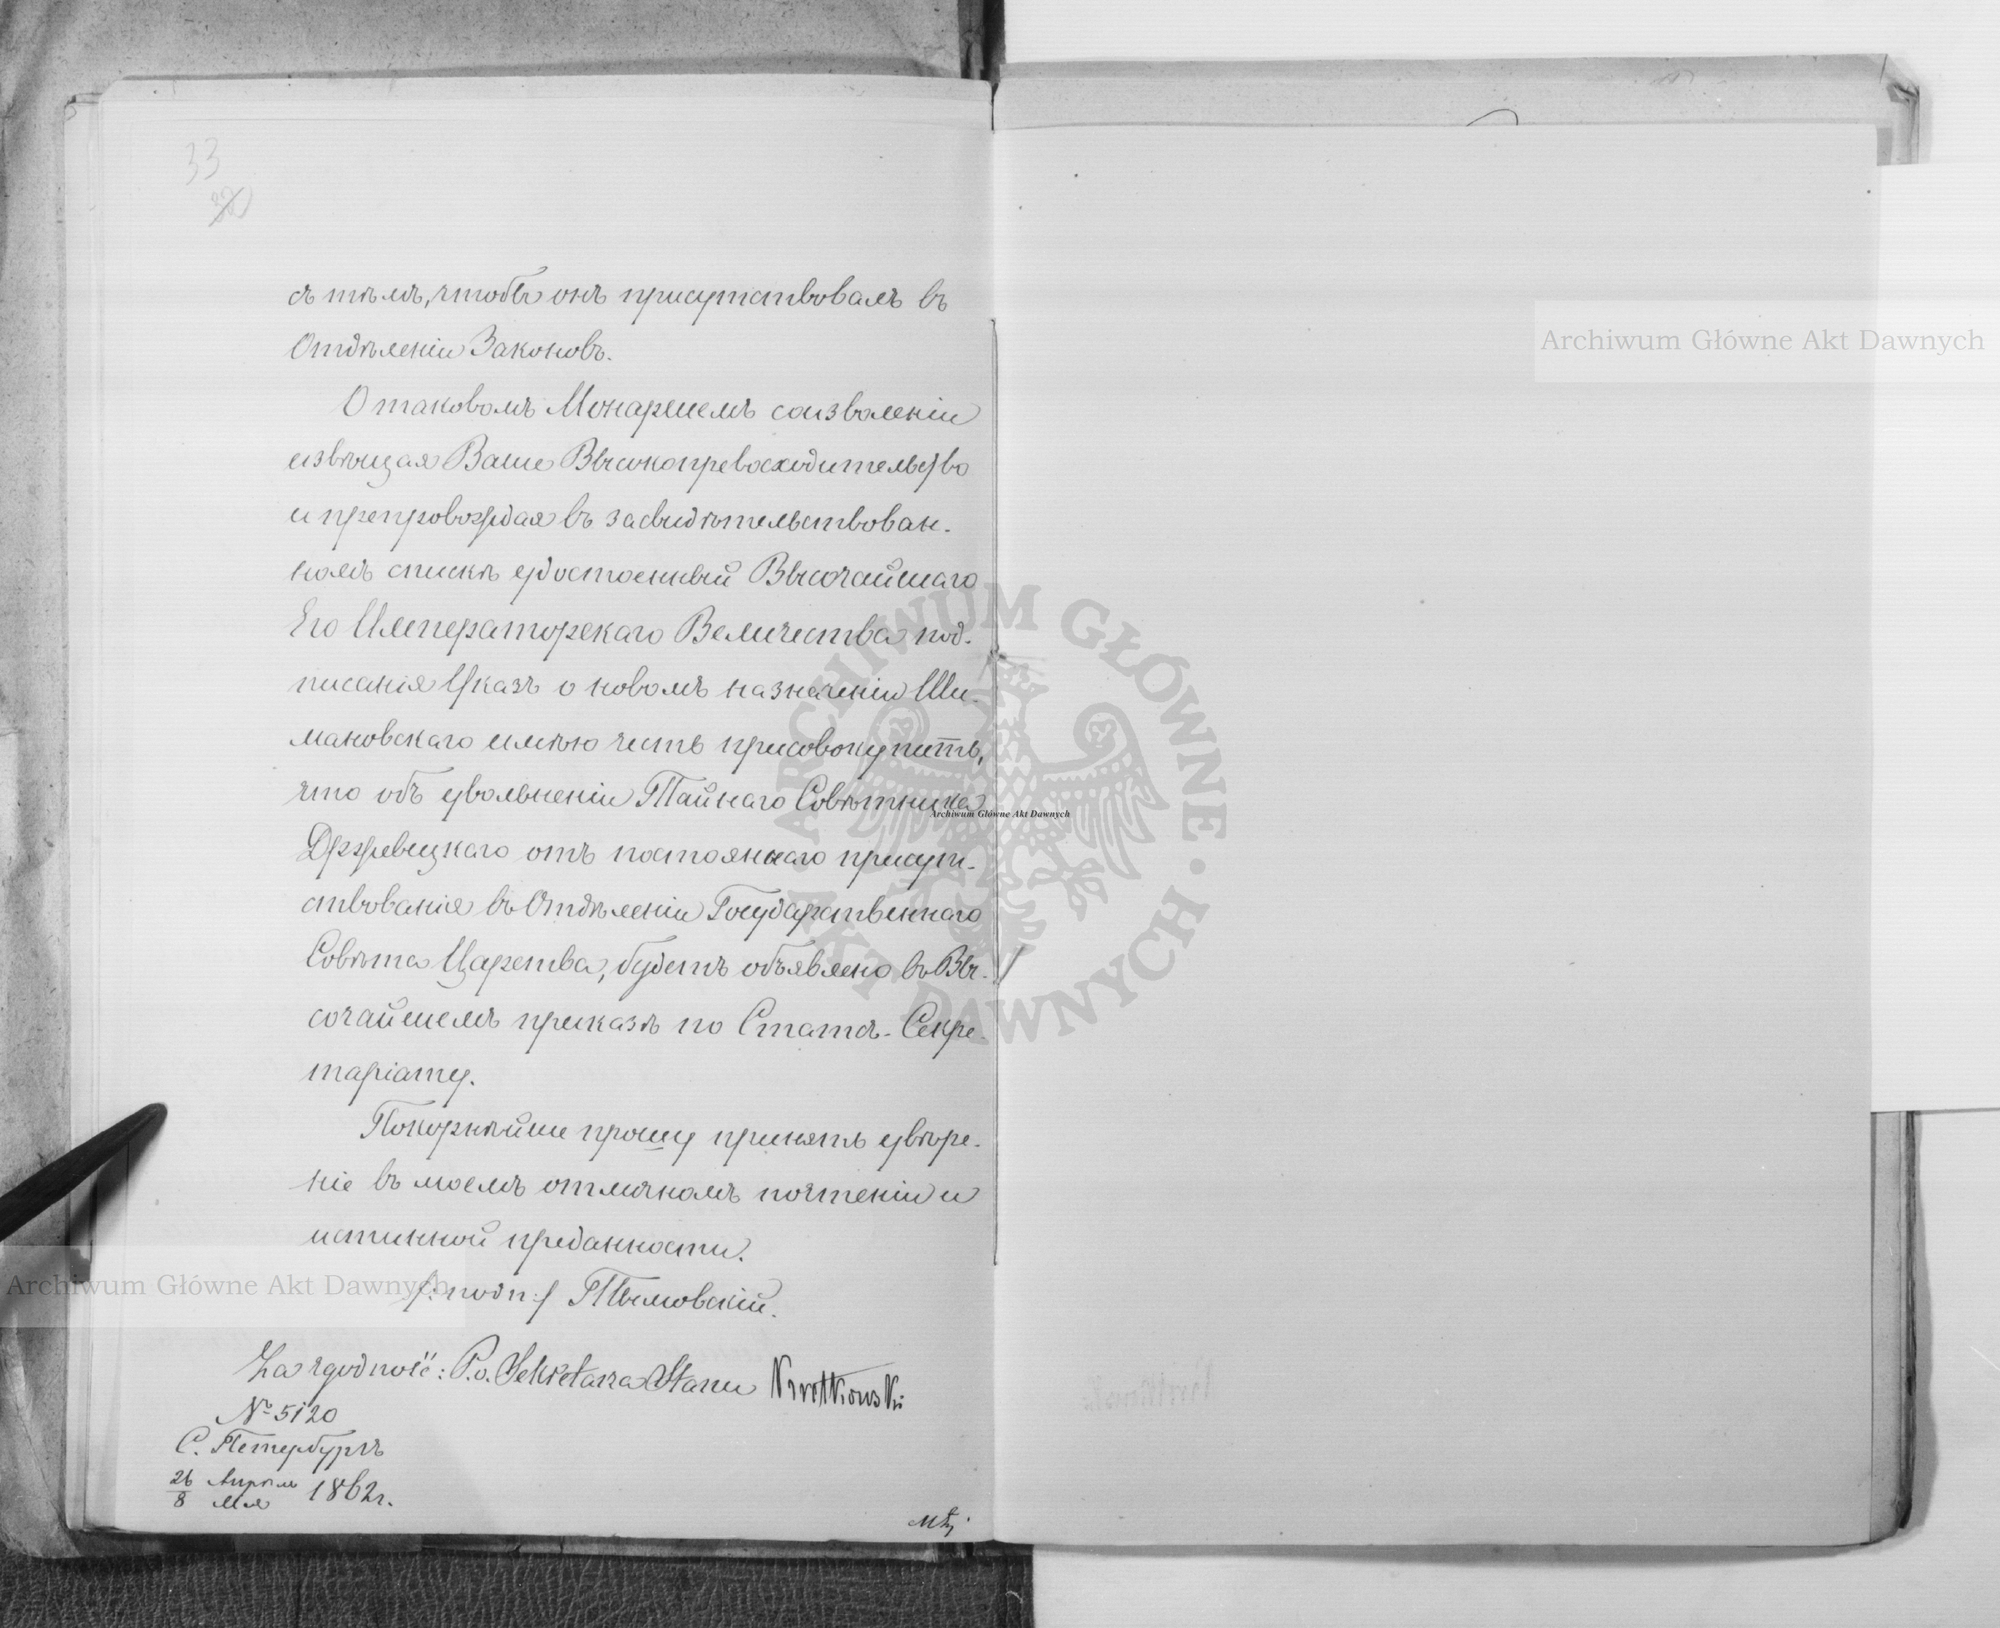 33
съ тѣмъ, чтобы онъ присутствовалъ въ
Отдѣленіи Законовъ.
О таковомъ Монаршемъ соизволеніи
извѣщая Ваше Высокопревосходительство
и препровождая въ засвидѣтельствован-
номъ спискѣ удостоенный Высочайшаго
Его Императорскаго Величества под-
писанія Указъ о новомъ назначеніи Ши-
мановскаго имѣю честь присовокупить,
что объ увольненіи Тайнаго Совѣтника
Држевецкаго отъ постояннаго присут-
ствованія въ Отдѣленіи Государственнаго
Совѣта Царства, будетъ объявлено въ Вы-
сочайшемъ приказѣ по Статсъ-Секре-
таріату.
Покорнѣйше прошу принять увѣре-
ніе въ моемъ отличномъ почтеніи и
истинной преданности.
/:подп:/ Тымовскій.
Za zgodność: P.o. Sekretarza Stanu
№ 5120
С. Петербургъ
26/8 Апрѣля/Мая 1862 г.
Archiwum Główne Akt Dawnych
Archiwum Główne Akt Dawnych
Archiwum Główne Akt Dawnych
ARCHIWUM GŁÓWNE · AKT DAWNYCH